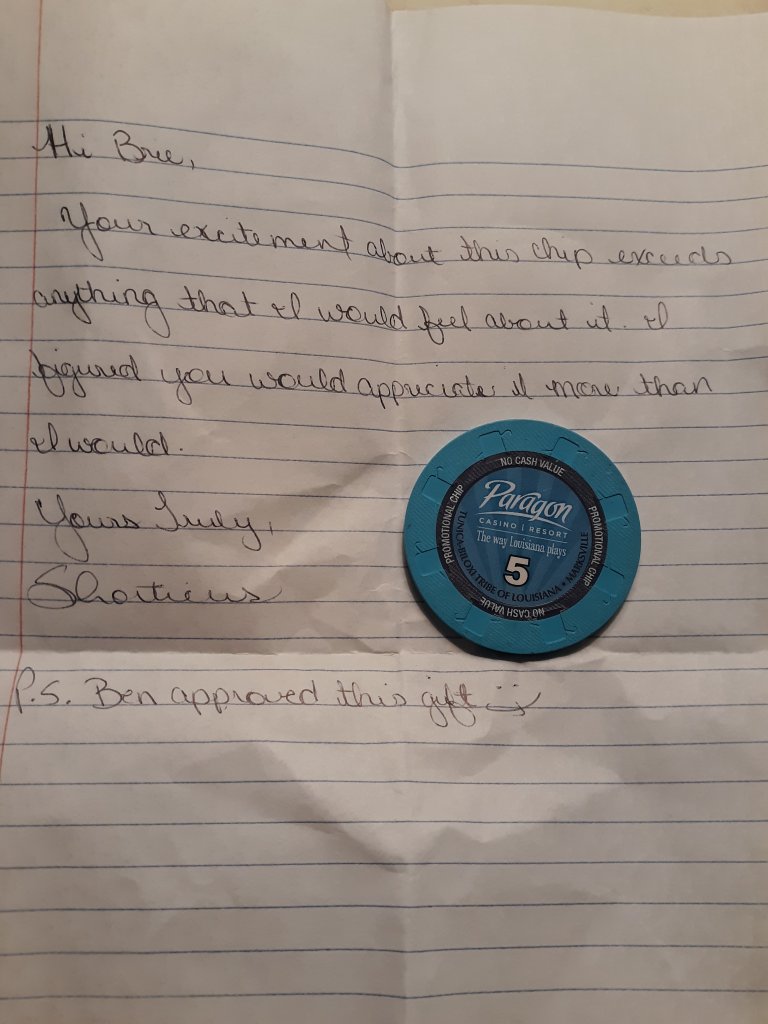 Hi Brie,
Your excitement about this chip exceeds
anything that I would feel about it. I
figured you would appreciate it more than
I would.
Yours Truly,
P.S. Ben approved this gift
NO CASH VALUE
PROMOTIONAL CHIP
PROMOTIONAL CHIP
Paragon
CASINO | RESORT
The way Louisiana plays
5
TUNICA-BILOXI TRIBE OF LOUISIANA • MARKSVILLE
NO CASH VALUE